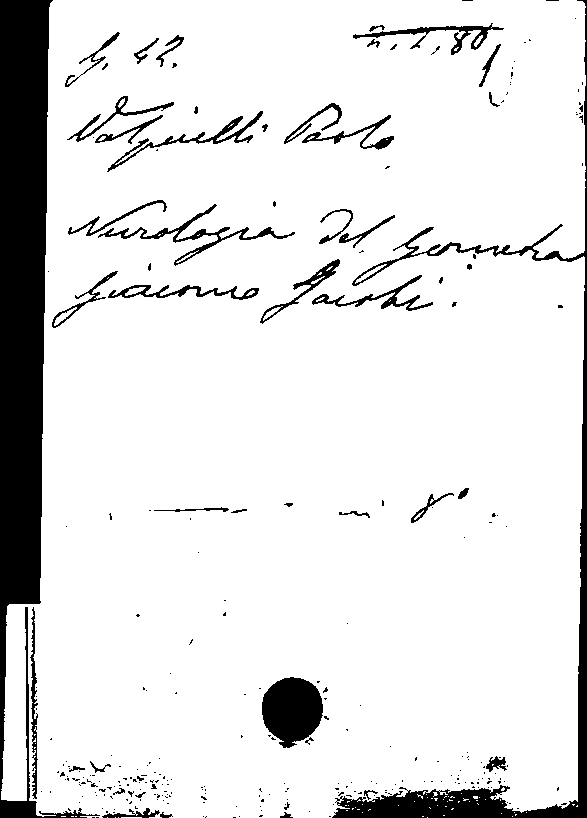 G. 42. 2. 2, 80
Volpicelli Paolo
Necrologia del Geometra
Giacomo Jacobi.
— in 8°.